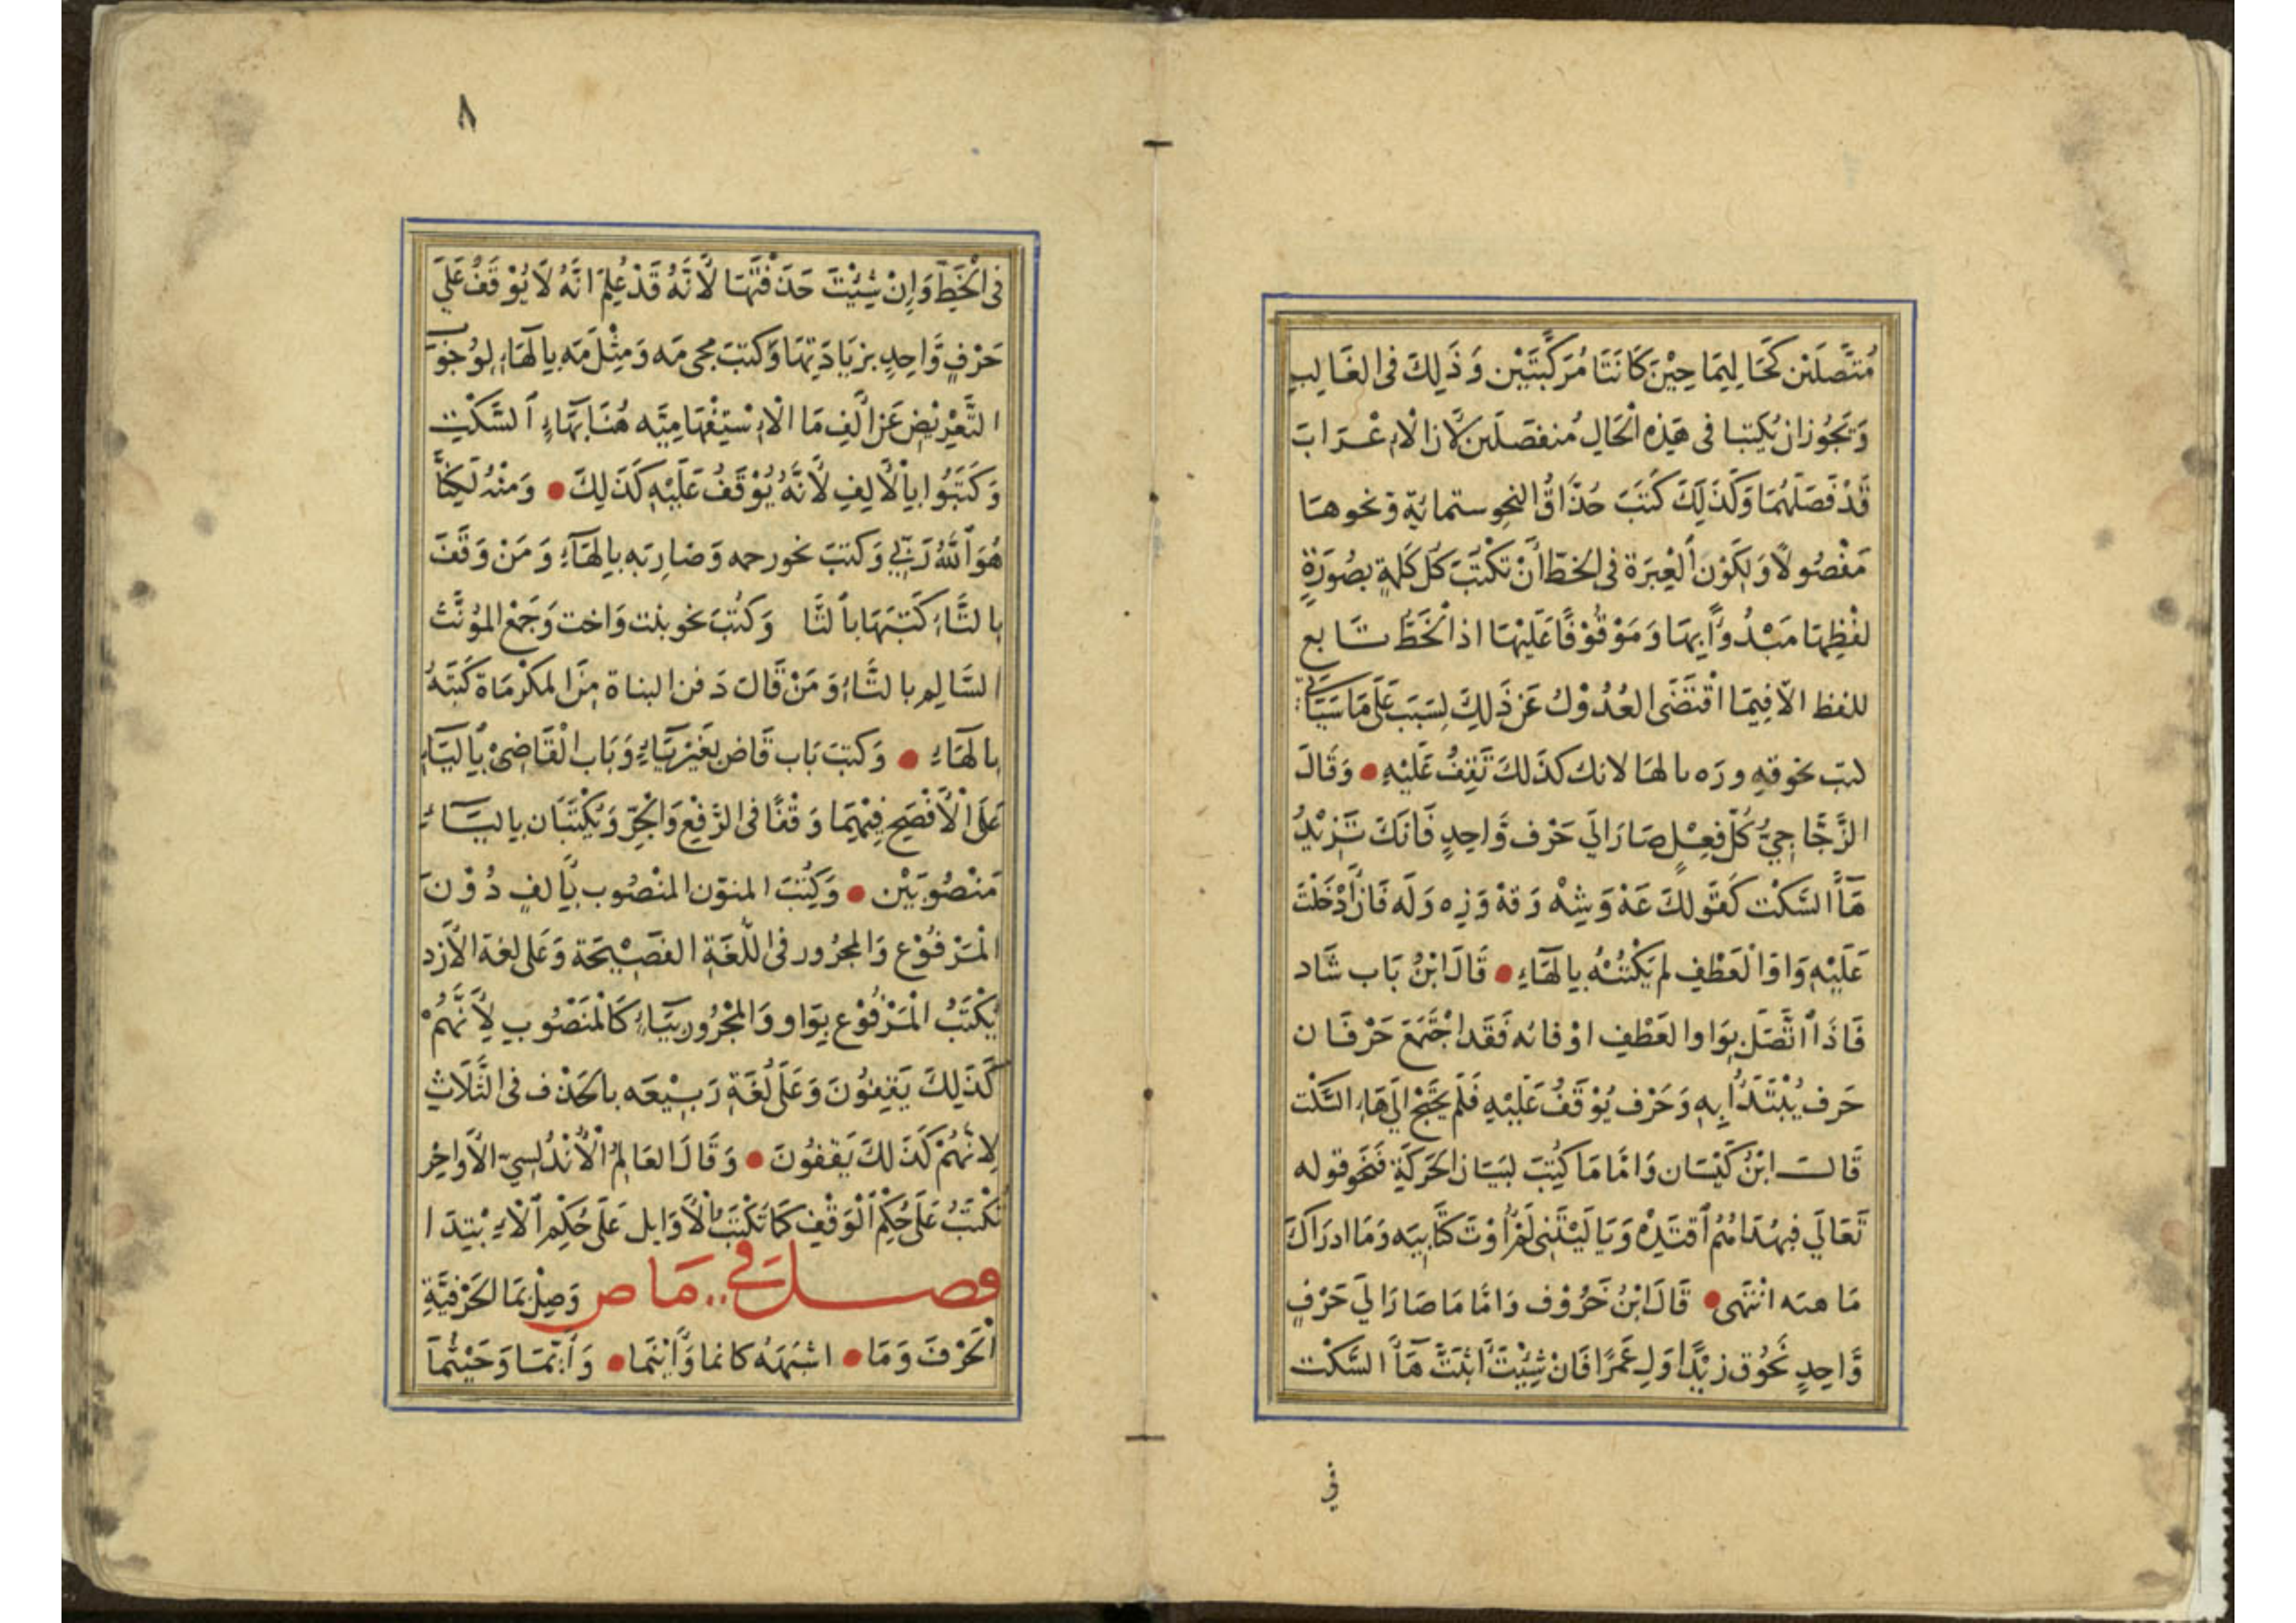 مُتَّصَلَيْن كَحَا لِيمَا حِيْنَ كَانَتَا مُرَكَّبَتَيْن وَذَلِكَ فى الغَالِب
وَيَجُوز ان يُكتبا فى هَذِه الْحَالِ مُنفصَلَين لاَن الْاِعْرَابَ
قَدْ فَصَلَهُمَا وَكَذَلِكَ كَتَبَ حُذَّاقُ النحوِ ستمائةٍ وَنحوهَا
مَفْصُولاً وَلِكَوْن الْعِبَرَة فى الخطّ اَنْ تَكْتُبَ كُل كَلمةٍ بصُورَةِ
لفْظِهَا مَبْدُوًّا بِهَا وَمَوْقُوْفًا عَلَيْهَا اذ الْخَطُّ تَابع
للفظ الاّ فِيمَا اقْتَضَى العُدُوْل عَن ذَلِكَ لِسَبَب عَلَى مَا سَيَاتى
كتب نحو قهِ ورَه بالهَا لانك كذَلكَ تَقِفُ عَلَيْهِ وَقَالَ
الزَّجَّاجِيُّ كُلّ فِعِلٍ صَارَ الَى حَرْف وَّاحِدٍ فَانكَ تَزِيْدُ
هَاَ السَّكْت كَقَولكَ عَهْ وَشِهْ وَقِهْ وَزِه وَلَه فَانْ اَدْخَلْتَ
عَلَيْهِ وَاوَ الْعَطْفِ لم يَكْتُبْهُ بِالْهَاءِ قَالَ ابْنُ بَاب شَاد
فَاذَا اتَّصَلَ بِوَاو العَطْفِ اوْ فائه فَقَد اجْتَمَعَ حَرْفَان
حَرف يُبْتَدَأُ بِهِ وَحَرْف يُوْقَفُ عَلَيْهِ فَلَم يَحْتَجْ الَى هَاءِ السَّكْت
قَالَ ابْنُ كَيْسَان وَامَّا مَا كُتِبَ لبَيَان الحَركَةِ فَنَحْو قوله
تَعَالَى فبِهُدَاهُمُ اقتَدِهْ وَيَا لَيْتَنِى لَمْ اُوْتَ كتَابِيَه وَمَا ادرَاكَ
مَا هيَه انْتَهَى قَالَ ابْنُ خَرُوْف وَامَّا مَا صَارَ الَى حَرْفٍ
وَّاحِدٍ نَحْوُ ق زيْدًا وَلِ عَمرًا فَانْ شِئْتَ اثْبَتَّ هَاَ السَّكْت
فى
٨
فى الْخَطِّ وَاِنْ شِئْتَ حَذَفْتَهَا لاَّنَّهُ قَدْ عُلِمَ انَّهُ لَا يُوْقَفُ عَلَى
حَرْفٍ وَّاحِدٍ بزيَادَتِهَا وَكتبَ مجى مَه وَمِثْلَ مَه بِالْهَاءِ لِوُجُوْبِ
التَّعْوِيْضِ عَن اَلِف مَا الْاِسْتِفْهَامِيَّه هُنَا بِهَاءِ السَّكْتِ
وَكَتَبُوا بِالْاَلِفِ لاَنَّهُ يُوْقَفُ عَلَيْهِ كَذَلِكَ وَمنْهُ لَكِنَّا
هُوَ اللهُ رَبِّى وَكتبَ نحو رحمه وَضَارِبَه بِالْهَاءِ وَمَنْ وَقَفَ
بِالتَّاءِ كَتَبَهَا بالتَّا وَكُتبَ نحو بنت وَاخت وَجَمْع المؤنَّث
السَّالِم بالتَّاءِ وَمَنْ قَالَ دَفن البناة مِنَ المكْرمَاة كَتَبَهُ
بِالهَاءِ وَكتبَ بَاب قَاض بغَيْر يَاءٍ وَبَاب الْقَاضِىْ بِاليَاءِ
عَلَى الْاَفْصَحِ فِيْهِمَا وَقْفًا فى الرَّفْعِ وَالْجَرّ وَيُكْتَبَان بِاليَاءِ
مَنْصُوبَيْن وَكُتبَ المنوّن المنْصُوب بِاَلفٍ دُوْنَ
الْمَرْفُوْع وَالمجرُور فى اللُّغَةِ الفَصِيْحَة وَعَلى لغة الاَزد
يُكْتَبُ الْمَرْفُوْع بِوَاو وَالمْجْرُور بيَاءٍ كَالْمَنْصُوبِ لاَنَّهُمْ
كَذَلِكَ يَقِفُونَ وَعَلَى لُغَةِ رَبِيْعَه بالحَذْف فى الثَّلَاثِ
لِانَّهُمْ كَذَلكَ يَقفُونَ وَقَالَ العَالِمُ الْاَنْدُلسِيّ الاَواخِرُ
تُكْتَبُ عَلَى حُكْمِ الْوَقْفِ كَمَا تُكْتَبُ الْاَوَايل عَلَى حُكْمِ الْاِبْتِدَا
فصل فى مَا ص وَصِلْ بمَا الحَرْفيَّةِ
الْحَرْفَ وَمَا اشبَهَهُ كانما وَاَيْنَما وَاَيّمَا وَحَيْثُمَا